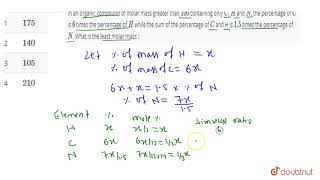 in an organic compound of molar mass greater than 100 containing only C, H and N, the percentage of C
is 6 times the percentage of H while the sum of the percentage of C and H is 1.5 times the percentage of
N. What is the least molar mass :
1 175
2 140
3 105
4 210
Let % of mass of H = x
% of mass of C = 6x
6x + x = 1.5 x % of N
% of N = 7x/1.5
Element % mole % Simplest ratio
H x x/1 = x 6
C 6x 6x/12 = 1/2x
N 7x/1.5 = 1/3x
doubtnut